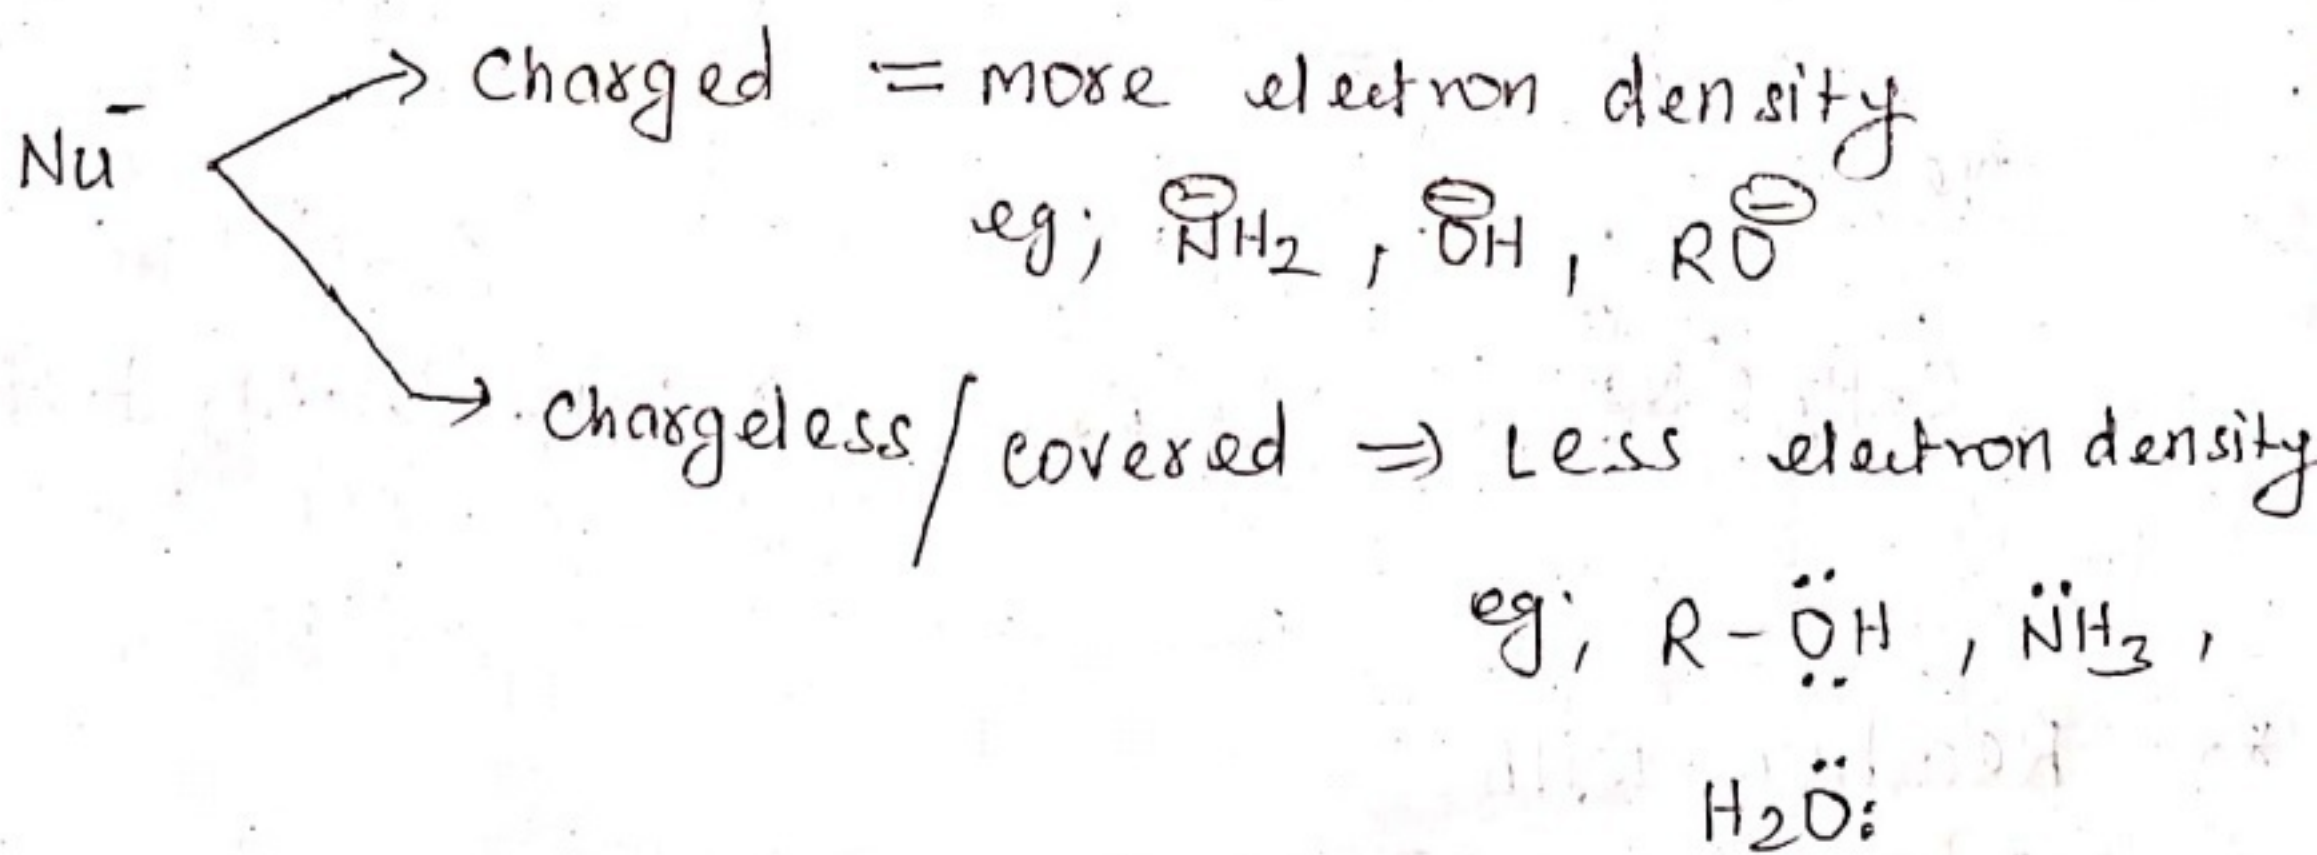 Nu⁻ → Charged = more electron density
eg; ⊖NH₂ , ⊖OH , RO⊖
→ Chargeless / covered ⇒ Less electron density
eg; R-ÖH , N̈H₃ ,
H₂Ö: